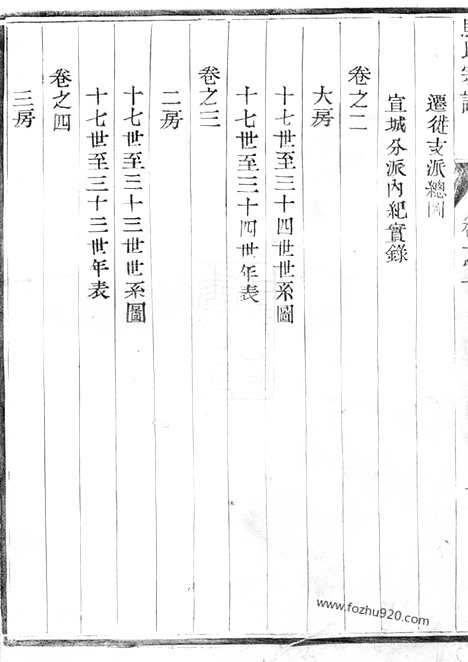 遷徙支派總圖
宣城分派內紀實錄
卷之二
大房
十七世至三十四世世系圖
十七世至三十四世年表
卷之三
二房
十七世至三十三世世系圖
十七世至三十三世年表
卷之四
三房
www.fozhu920.com